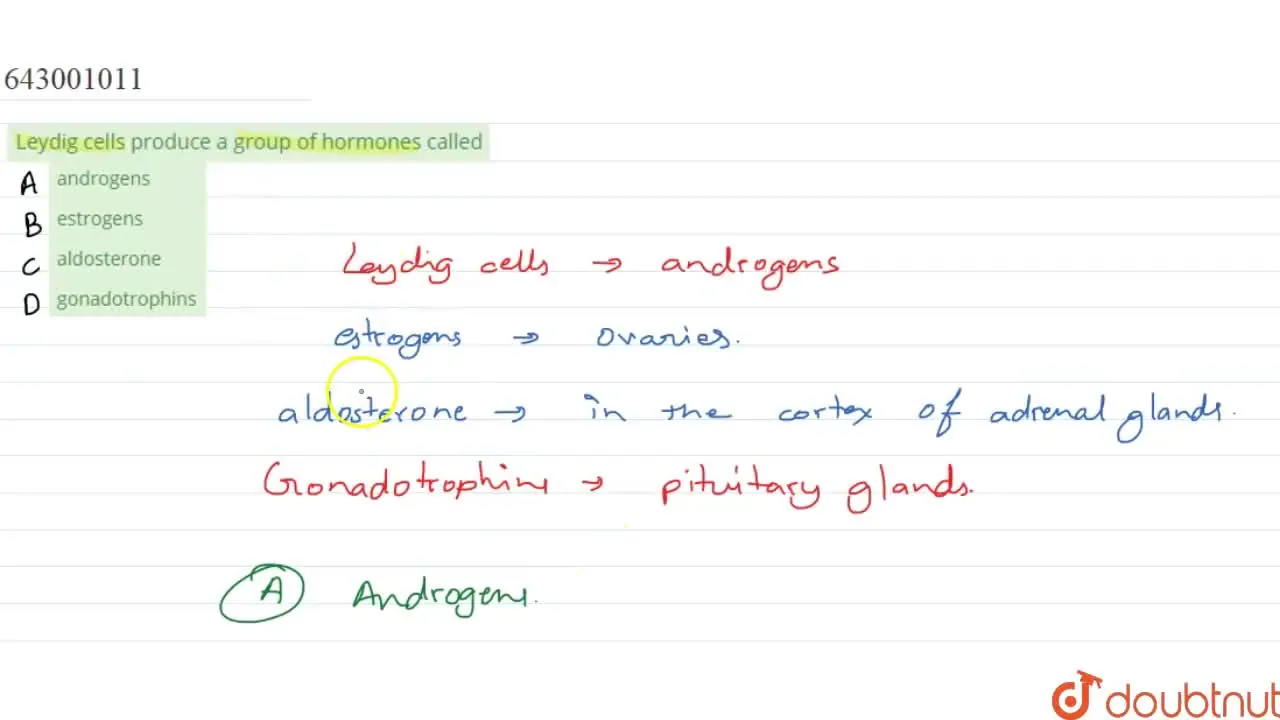 643001011
Leydig cells produce a group of hormones called
A androgens
B estrogens
C aldosterone
D gonadotrophins
Leydig cells → androgens
estrogens → ovaries.
aldosterone → in the cortex of adrenal glands.
Gonadotrophins → pituitary glands.
A Androgens.
doubtnut